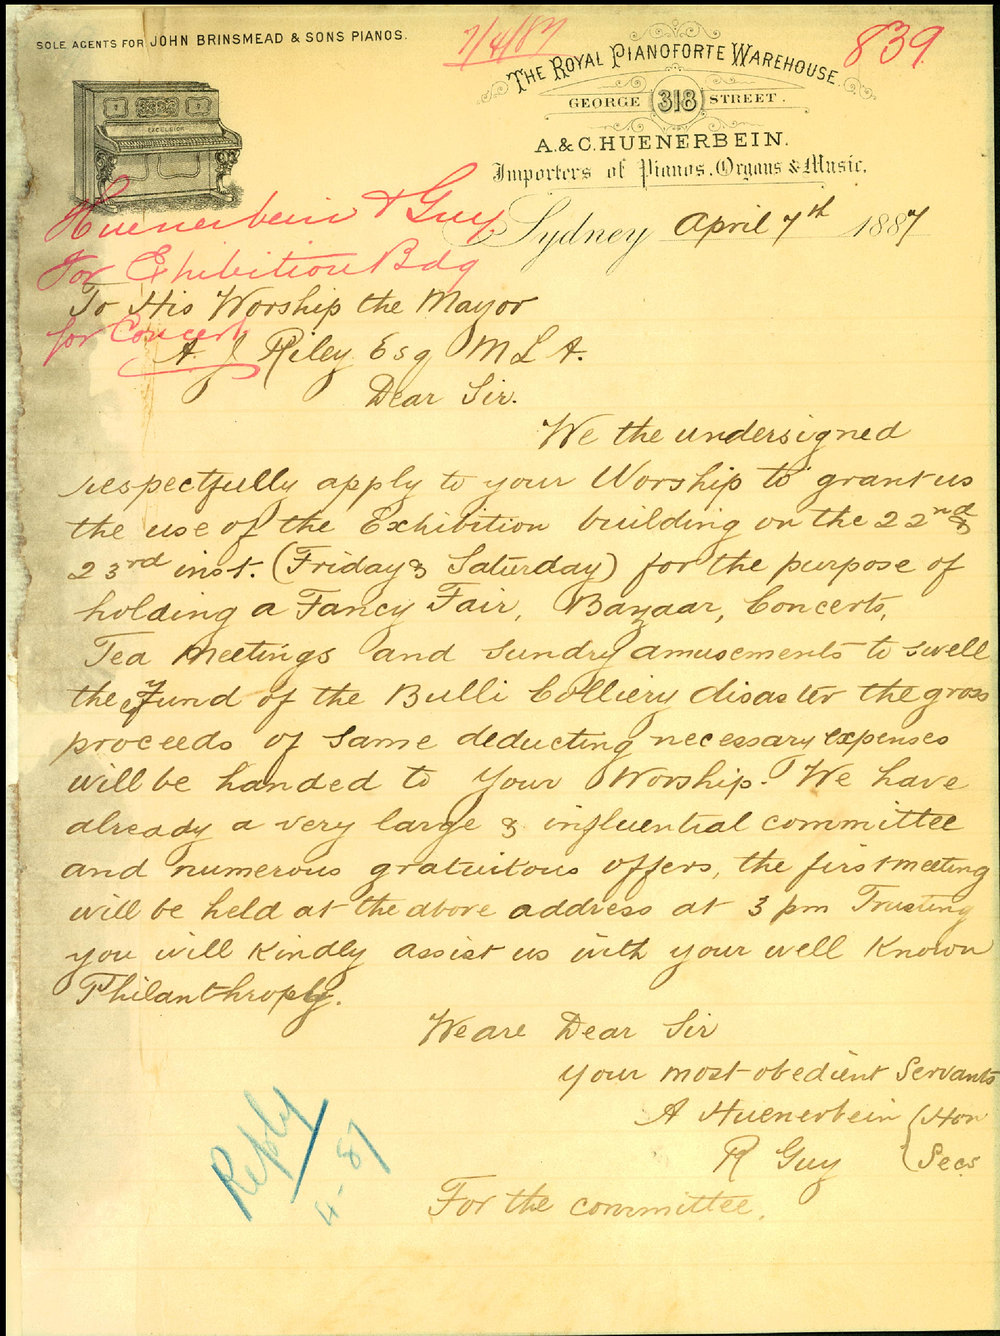 SOLE AGENTS FOR JOHN BRINSMEAD & SONS PIANOS.
7/4/87
839
THE ROYAL PIANOFORTE WAREHOUSE.
GEORGE 318 STREET.
A. & C. HUENERBEIN.
Importers of Pianos, Organs & Music.
EXCELSIOR
Huenerbein & Guy
For Exhibition Bdg
for Concert
Sydney April 7th 1887
To His Worship the Mayor
A. J Riley Esq M L A.
Dear Sir.
We the undersigned
respectfully apply to your Worship to grant us
the use of the Exhibition building on the 22nd &
23rd inst. (Friday & Saturday) for the purpose of
holding a Fancy Fair, Bazaar, Concerts,
Tea Meetings and Sundry amusements to swell
the Fund of the Bulli Colliery disaster the gross
proceeds of same deducting necessary expenses
will be handed to your Worship. We have
already a very large & influential committee
and numerous gratuitous offers, the first meeting
will be held at the above address at 3 pm Trusting
you will kindly assist us with your well known
Philanthrophy.
We are Dear Sir
your most obedient Servants
A Huenerbein (Hon
R Guy (Secs
For the committee.
Reply
4-87